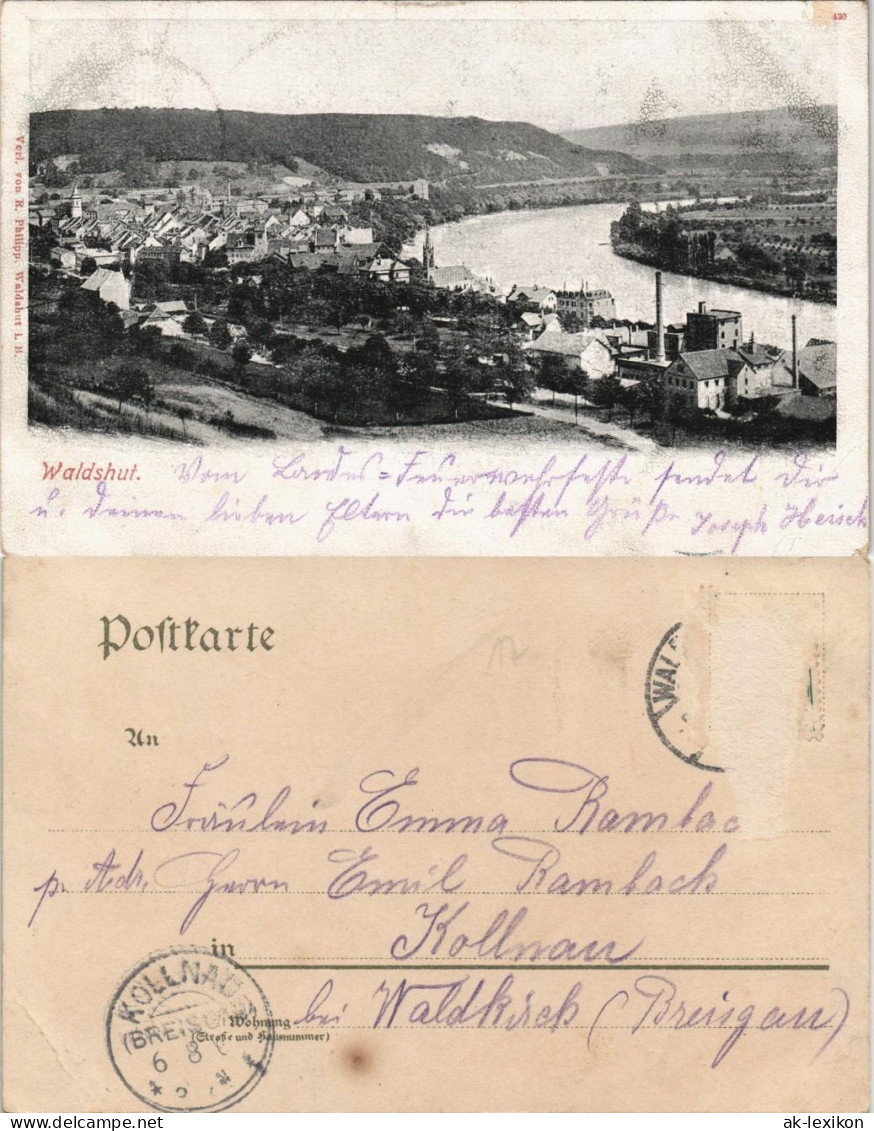 430
Verl. von R. Philipp, Waldshut i. B.
Waldshut. Vom Landes=Feuerwehrfeste sendet Dir
u. deinen lieben Eltern die besten Grüße Joseph Heisch
Postkarte
WAL
An
Fräulein Emma Rambac
p. Adr. Herrn Emil Rambach
in Kollnau
KOLLNAU
(BREISGAU)
6 8
Wohnung bei Waldkirch (Breisgau)
(Straße und Hausnummer)
ak-lexikon